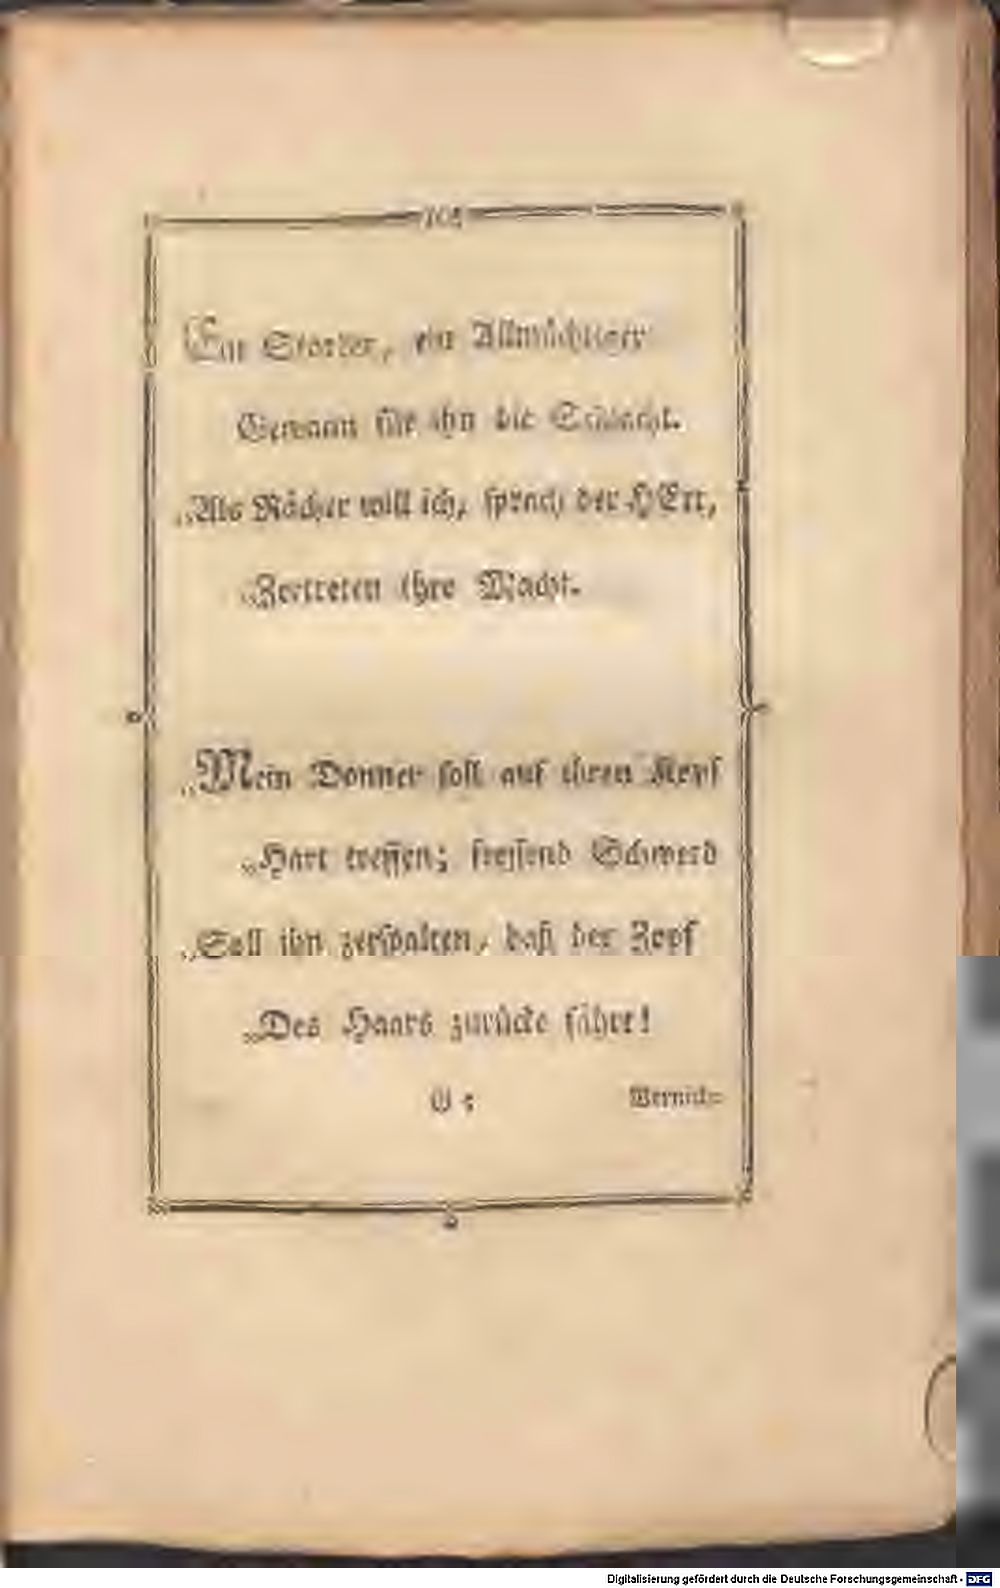 Ein Starker, ein Allmächtiger
Gewann für ihn die Schlacht.
„Als Rächer will ich, sprach der HErr,
„Zertreten ihre Macht.
„Mein Donner soll auf ihren Kopf
„Hart treffen; fressend Schwerd
„Soll ihn zerspalten, daß der Zopf
„Des Haars zurücke fährt!
G
Vernich-
Digitalisierung gefördert durch die Deutsche Forschungsgemeinschaft - DFG